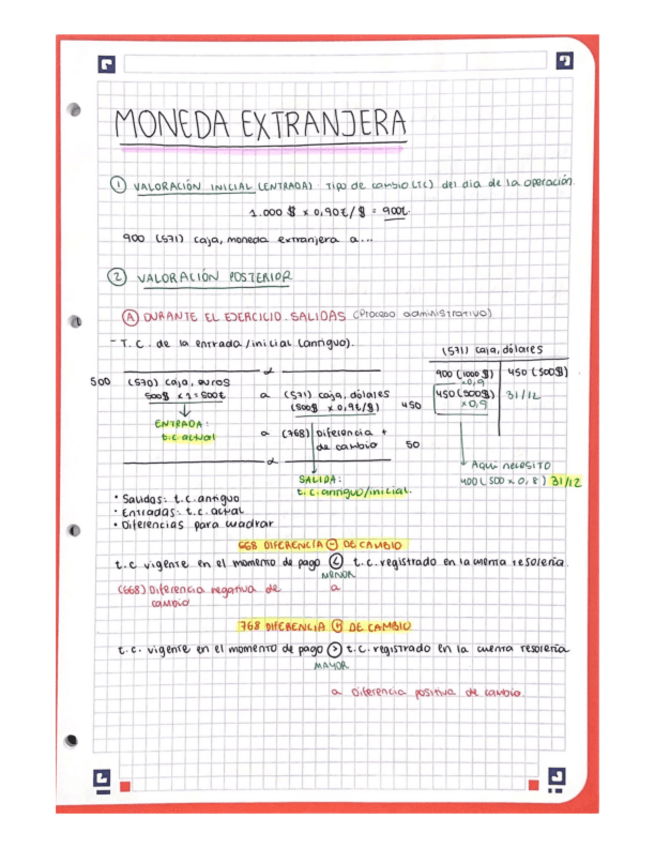 MONEDA EXTRANJERA
① VALORACIÓN INICIAL (ENTRADA) Tipo de cambio (TC) del día de la operación.
1.000 $ x 0,90€/$ = 900€.
900 (571) caja, moneda extranjera a...
② VALORACIÓN POSTERIOR
Ⓐ DURANTE EL EJERCICIO. SALIDAS (Proceso administrativo)
- T.C. de la entrada/inicial (antiguo).
(571) caja, dólares
900 (1000 $) x0,9
450 (500$)
450 (500$) x0,9
31/12
500 (570) caja, euros
500$ x 1 = 500€
a (571) caja, dólares
(500$ x 0,9€/$) 450
ENTRADA:
t.c actual
a (768) Diferencia +
de cambio 50
SALIDA:
t.c. antiguo/inicial.
Aquí necesito
400 (500 x 0,8) 31/12
• Salidas: t.c. antiguo
• Entradas: t.c. actual
• Diferencias para cuadrar
668 DIFERENCIA ⊖ DE CAMBIO
t.c vigente en el momento de pago < t.c. registrado en la cuenta tesorería.
MENOR
(668) Diferencia negativa de
cambio
a
768 DIFERENCIA ⊕ DE CAMBIO
t.c. vigente en el momento de pago > t.c. registrado en la cuenta tesorería
MAYOR
a Diferencia positiva de cambio.